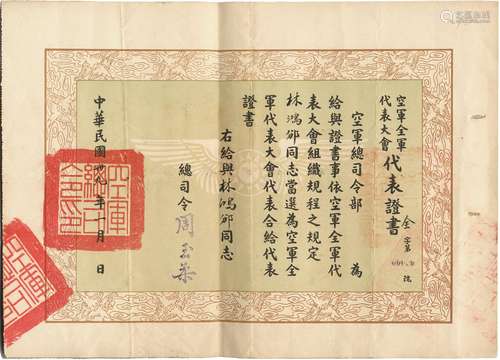 空軍全軍
代表大會
代表證書
全字第
號
空軍總司令部 為
給與證書事依空軍全軍代
表大會組織規程之規定
林鴻邠同志當選為空軍全
軍代表大會代表合給代表
證書
右給與林鴻邠同志
總司令
周至柔
中華民國 年一月 日